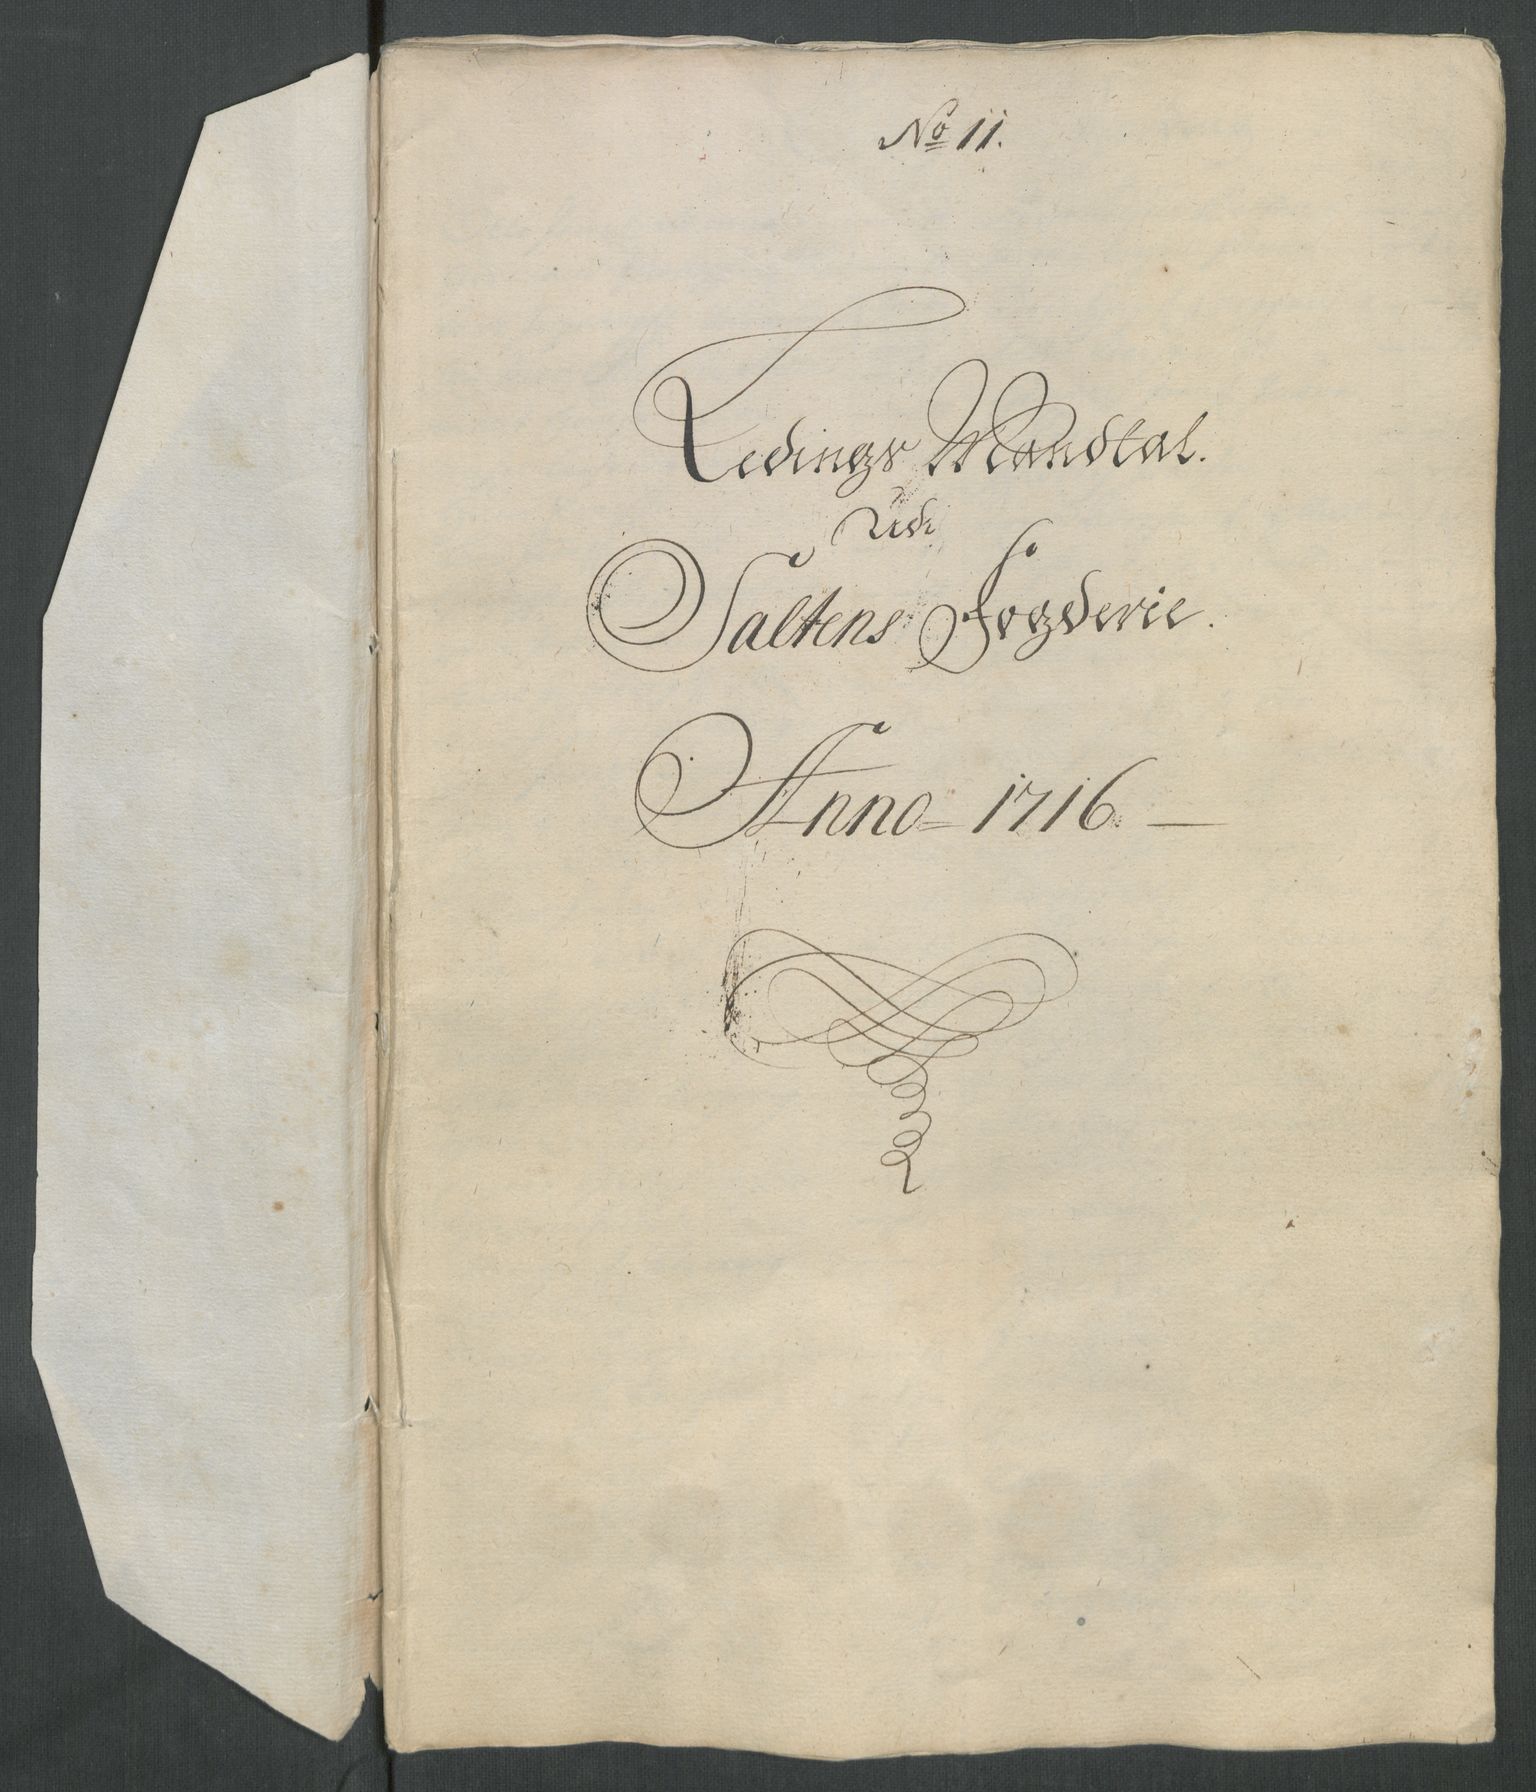 No 11.
Ledings Mandtal.
Udi
Saltens Fogderie.
Anno 1716